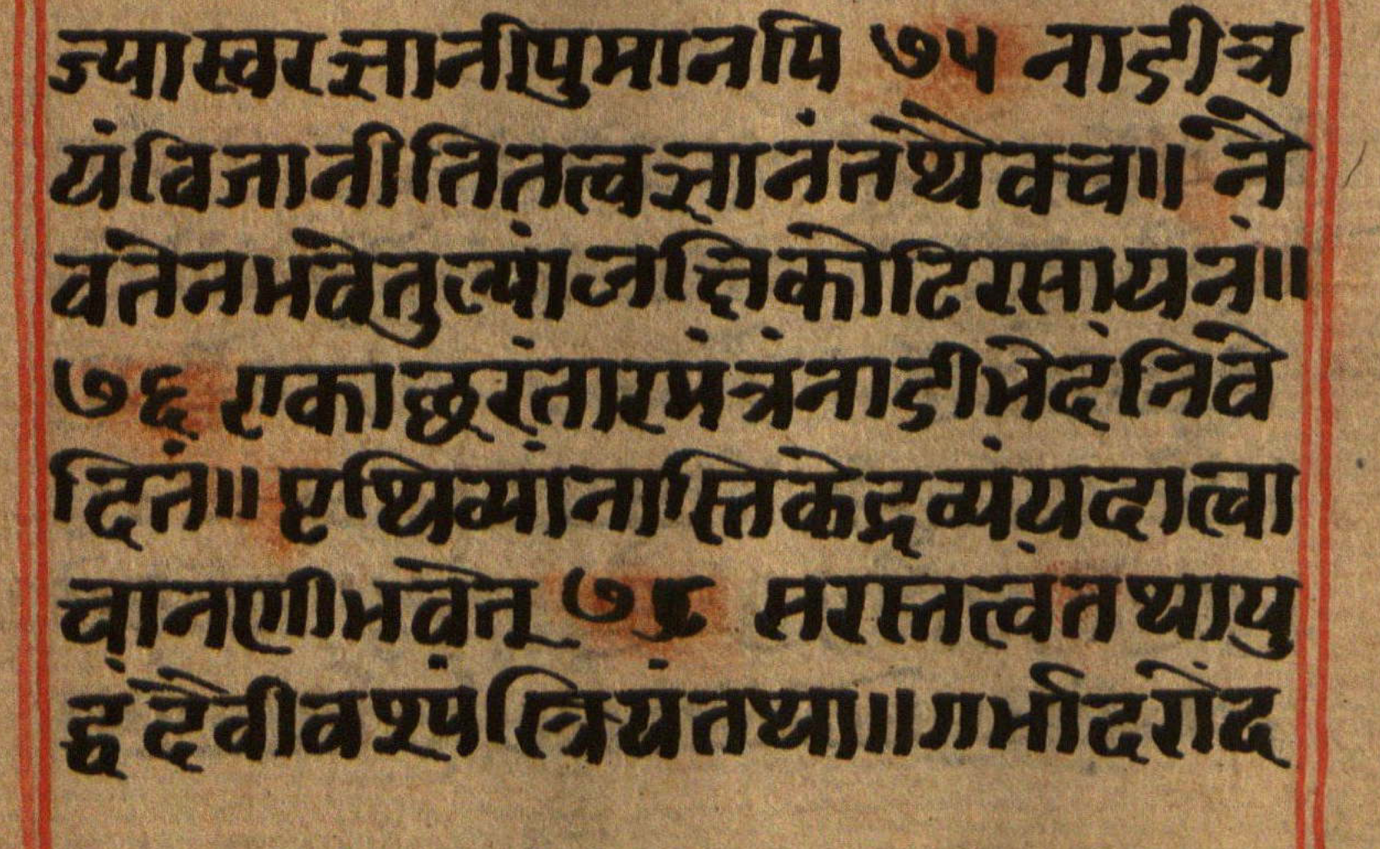 ज्यास्वरज्ञानीपुमानपि ७५ नाडीत्र
यंविजानीतितत्वज्ञानंतथैवच॥ नै
वतेनभवेतुल्यांजत्तिकोटिरसायनं॥
७६ एकाछरंतारमंत्रंनाडीभेदंनिवे
दितं॥ पृथिव्यांनास्तिकेद्रव्यंयदात्वा
चानणीभवेत् ७८ सरस्तत्वंतथायु
द्धंदैवीवश्पंस्त्रियंतथा॥गर्भादरोंद